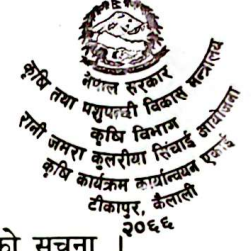 नेपाल सरकार
कृषि तथा पशुपन्छी विकास मन्त्रालय
कृषि विभाग
रानी जमरा कुलरीया सिंचाई आयोजना
कृषि कार्यक्रम कार्यान्वयन एकाई
टीकापुर, कैलाली
२०६६
को सूचना ।